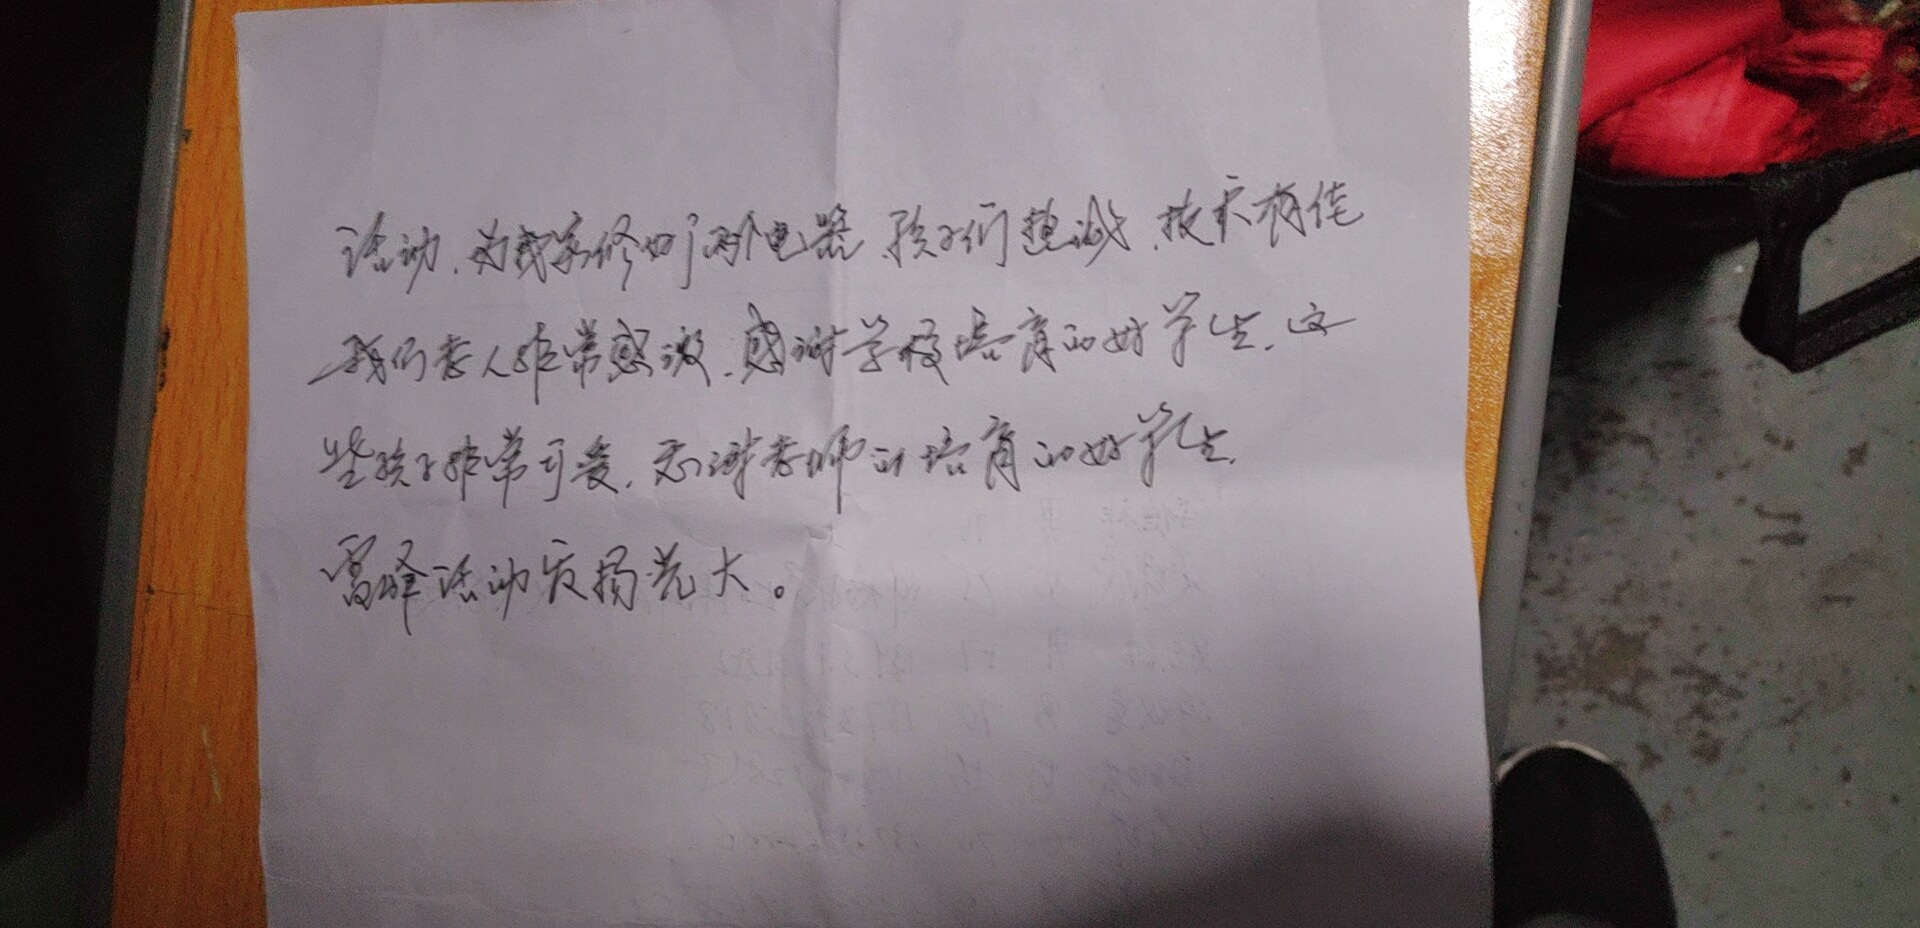 活动,为我家修好了两个电器,孩子们热诚,技术很佳
我们老人非常感激,感谢学校培育的好学生,这
些孩子非常可爱,感谢老师的培育的好学生,
雷峰活动发扬光大。